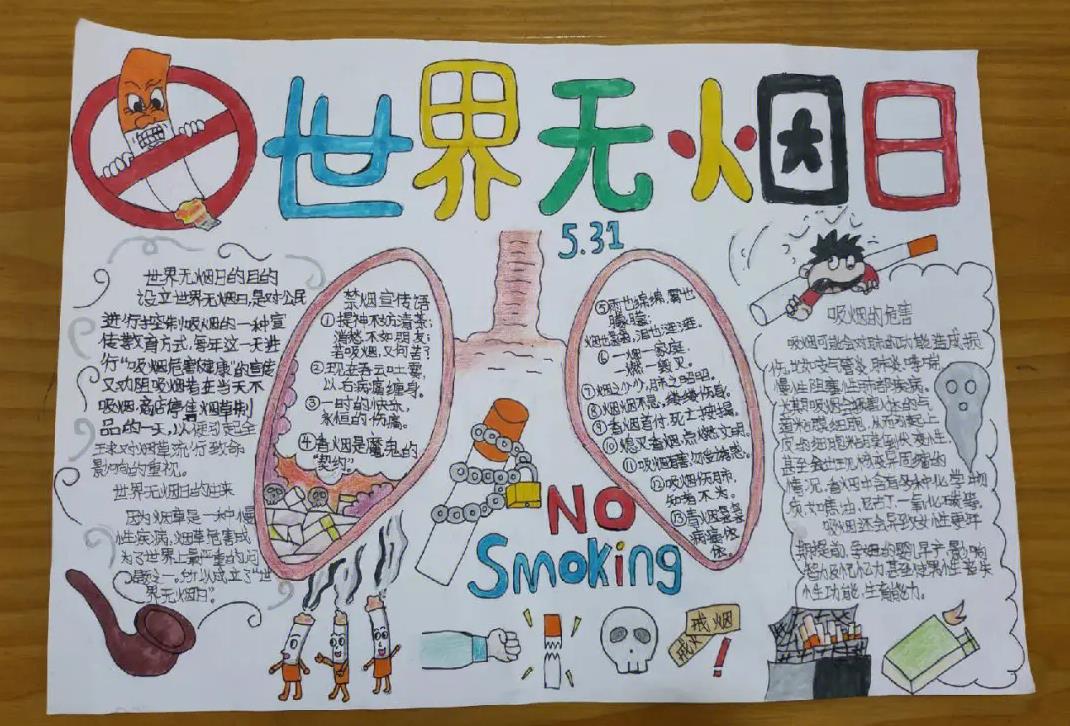 世界无烟日
5.31
世界无烟日的目的
设立世界无烟日,是对公民
进行控制吸烟的一种宣
传教育方式,每年这一天进
行"吸烟危害健康"的宣传
又劝阻吸烟者在当天不
吸烟,商店停售烟草制
品的一天,以便引起全
球对烟草流行致命
影响的重视。
世界无烟日的由来
因为烟草是一种慢
性疾病,烟草危害成
为了世界上最严重的问
题之一。所以成立了"世
界无烟日"。
禁烟宣传语
①提神不妨清茶;
消愁不如朋友;
若吸烟,又何苦?
②现在吞云吐雾,
以后病痛缠身。
③一时的快乐,
永恒的伤痛。
④香烟是魔鬼的
"契约"
⑤雨也绵绵,雾也
朦朦;
⑥一烟一家庭
一燃一毁灭。
⑧烟烟不息,缕缕伤身。
⑨香烟首付,死亡按揭。
⑩熄灭香烟,点燃文明。
⑫吸烟伤肺,
知者不为。
⑬香烟袅袅
病痛依
依。
NO
Smoking
吸烟的危害
吸烟可能会对肺的功能造成损
伤,比如支气管炎、肺炎、哮喘,
慢性阻塞性肺部疾病。
情况,香烟中含有多种化学物
质,如焦油,尼古丁,一氧化碳等。
吸烟还会导致女性更年
期提前,孕妇的婴儿早产,影响
智力及记忆力甚至使男性丧失
性功能,生育能力。
戒烟
戒火
!